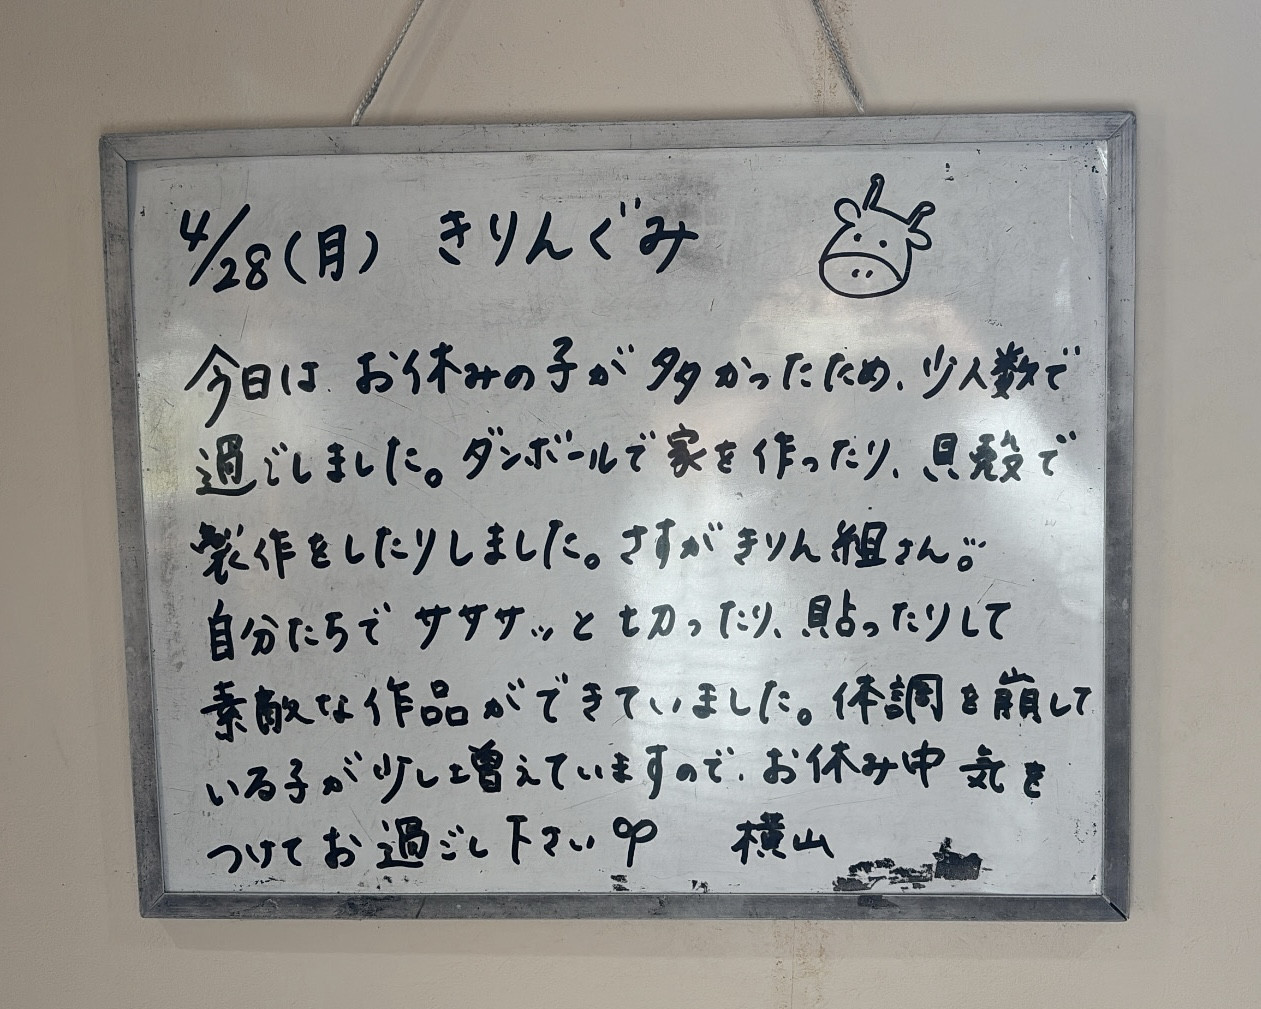 4/28(月) きりんぐみ
今日は、お休みの子が多かったため、少人数で
過ごしました。ダンボールで家を作ったり、貝殻で
製作をしたりしました。さすがきりん組さん。
自分たちでサササッと切ったり、貼ったりして
素敵な作品ができていました。体調を崩して
いる子が少し増えていますので、お休み中気を
つけてお過ごし下さい
横山